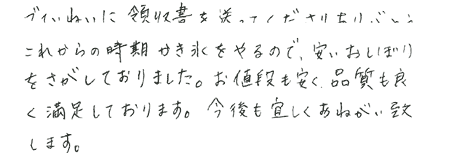 ていねいに領収書を送ってくださりありがとう
これからの時期かき氷をやるので、安いおしぼり
をさがしておりました。お値段も安く、品質も良
く満足しております。今後も宜しくおねがい致
します。